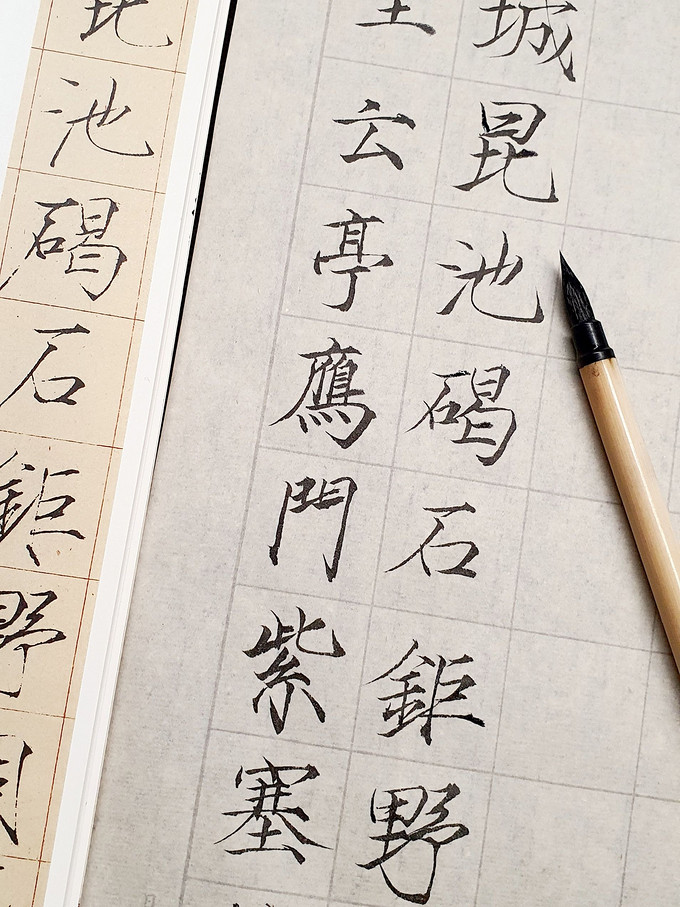 昆池碣石鉅野
云亭鴈門紫塞
城昆池碣石鉅野